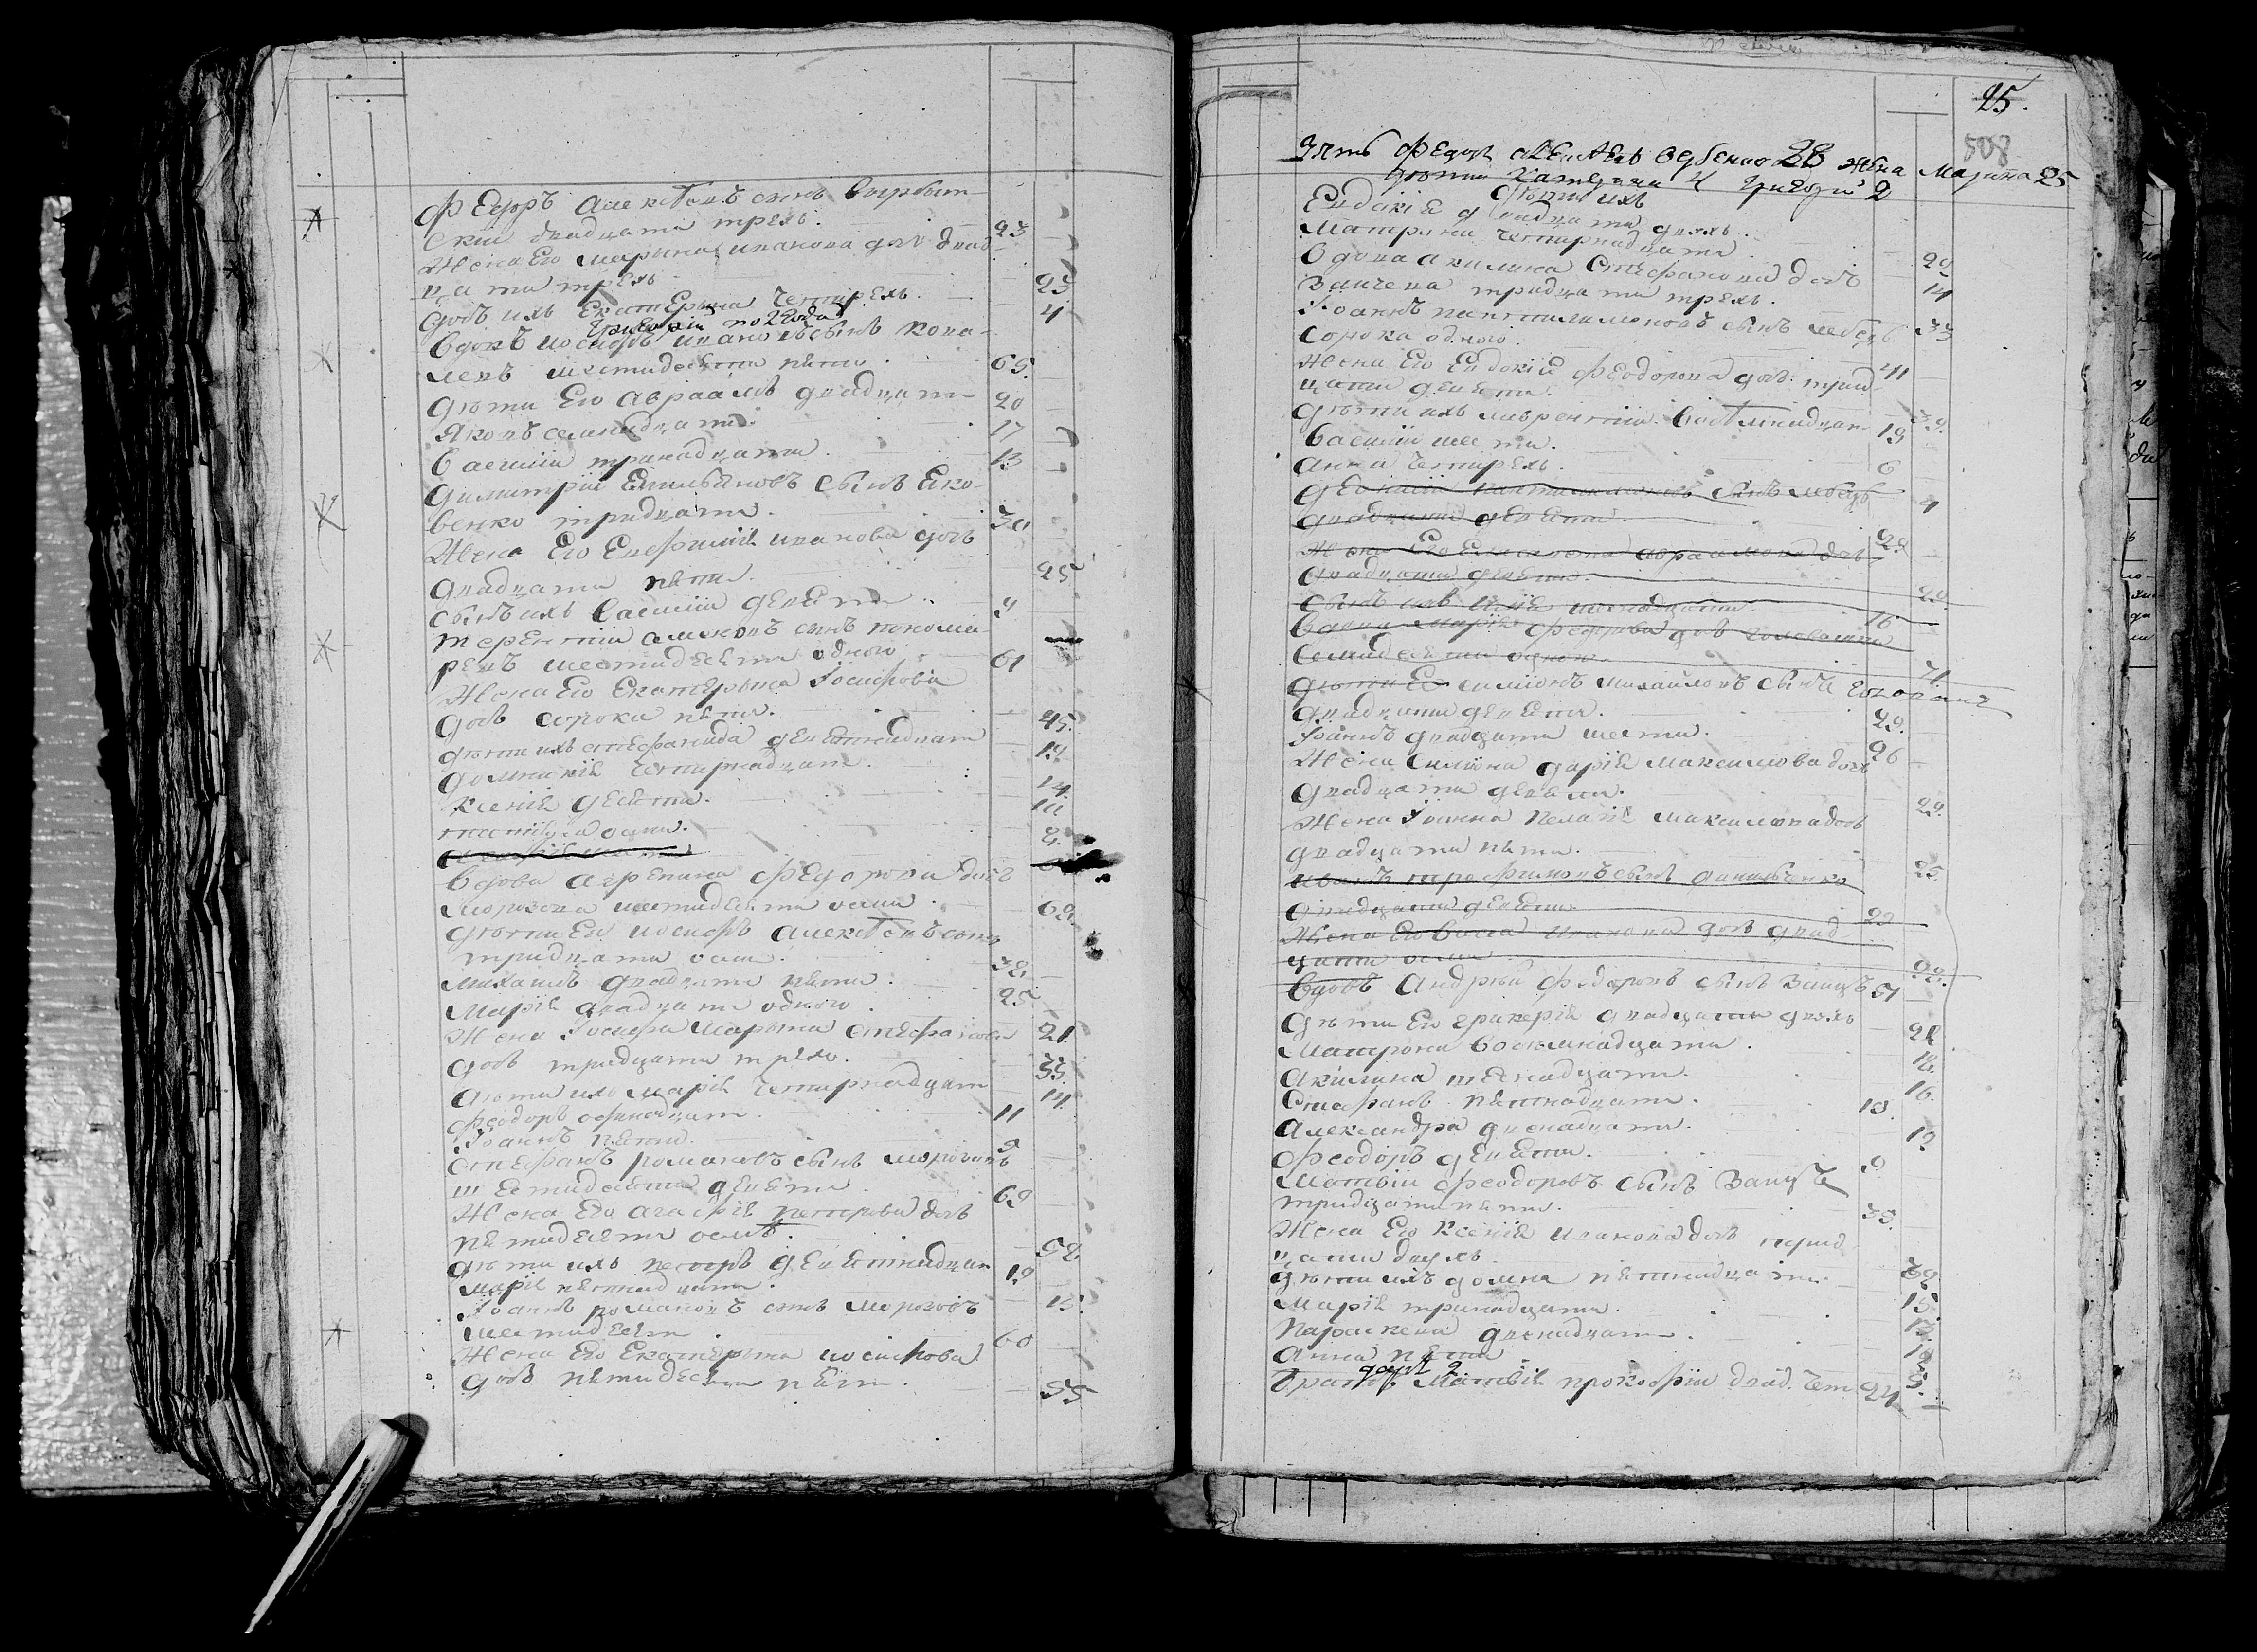 Федоръ Алексѣевъ сынъ
двадцати трехъ. 23
Жена Его Марына Иванова дочь двад-
цати трехъ 23
дочь ихъ Екатерына четырехъ. 4
Григорій по 2 Года
Вдовъ Иосифъ Ивановъ сынъ Кова-
левъ шестидесяти пяти. 65
дѣти Его Авраамъ двадцати 20
Яковъ семнадцати. 17
Василій тринадцати. 13
Димитрій Емильяновъ сынъ Яко-
венко тридцати. 30
Жена Его Евфимія Иванова дочь
двадцати пяти. 25
сынъ ихъ Василій девяти. 9
Терентій сынъ Понома-
ревъ шестидесяти одного 61
Жена Его Екатерына Іосифова
дочь сорока пяти. 45
дѣти ихъ Стефанида девятнадцати 19
Домникія четырнадцати. 14
Ксенія десяти. 10
осми. 8
Вдова Агрепина Федорова дочь
Морозова шестидесяти осми. 68
дѣти Ея Иосифъ Алексѣевъ сынъ
тридцати осми. 38
Михаилъ двадцати пяти. 25
Марія двадцати одного. 21
Жена Іосифа Марына Стефанова
дочь тридцати трехъ. 33
дѣти ихъ Марія четырнадцати 14
Феодоръ одинадцати. 11
Іоаннъ пяти. 5
Стефанъ Романовъ сынъ Морозовъ
шестидесяти девяти 69
Жена Его Агафія Петрова дочь
пятидесяти осмь. 58
дѣти ихъ Петръ девятнадцати 19
Марія пятнадцати. 15
Іоаннъ Романовъ сынъ Морозовъ
шестидесяти. 60
Жена Его Екатерына Иосифова
дочь пятидесяти пяти. 55
25.
508
Зять Федоръ Алексѣевъ 28 жена Марина 25
дѣти Катерина 4 Григорій 2
дѣти ихъ
Евдокія двадцати двухъ.
Матрона четырнадцати. 14
Вдова Акилина Стефанова дочь
Заичева тридцати трехъ. 33
Іоаннъ Пантилимоновъ сынъ Лебедь
сорока одного. 41
Жена Его Евдокія Феодорова дочь трид-
цати девяти. 39
дѣти ихъ Лаврентій
Василій шести. 6
Анна четырехъ. 4
Пантилимоновъ сынъ Лебедь
двадцати девяти. 29
Жена Его Авраамова дочь
двадцати девяти. 29
сынъ ихъ Илія шестнадцати. 16
Вдова Марія Федорова дочь
семидесяти одного. 71
дѣти Ея Симіонъ Михайловъ сынъ
двадцати девяти. 29
Іоаннъ двадцати шести. 26
Жена Симіона Дарія Максимова дочь
двадцати девяти. 29
Жена Іоанна Пелагія Максимова дочь
двадцати пяти. 25
Иванъ Трофимовъ сынъ Данильченко
двадцати девяти. 29
Жена Его Васса Иванова дочь двад-
цати осми. 28
Вдовъ Андрей Федоровъ сынъ Заицъ 51
дѣти Его Гликерія двадцати двухъ 22
Матрона восемнадцати. 18
Акилина шеснадцати. 16
Стефанъ пятнадцати. 15
Александра двенадцати. 12
Феодоръ девяти. 9
Матвій Феодоровъ сынъ Заицъ
тридцати пяти. 35
Жена Его Ксенія Иванова дочь трид-
цати двухъ 32
дѣти ихъ Домна пятнадцати. 15
Марія тринадцати. 13
Параскева двенадцати. 12
Анна пяти 5
Дарія 2
Братъ Матвія Прокофій двад. чет 24